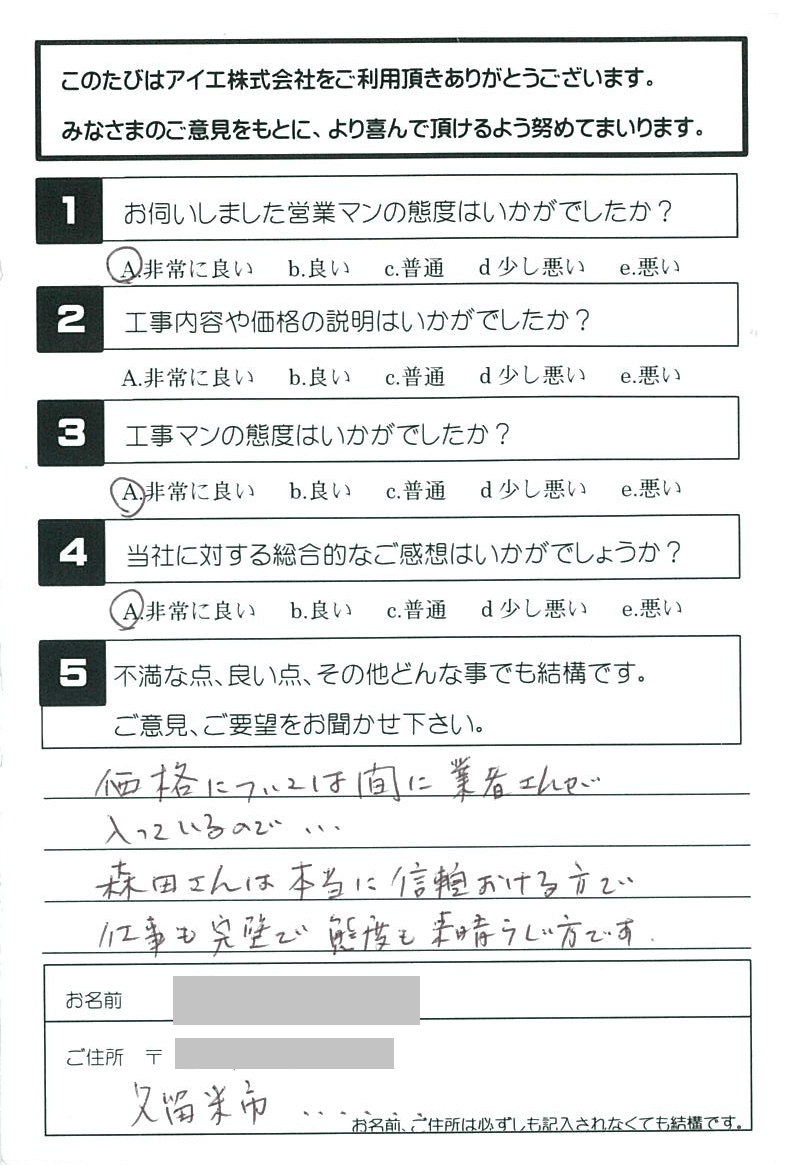 このたびはアイエ株式会社をご利用頂きありがとうございます。
みなさまのご意見をもとに、より喜んで頂けるよう努めてまいります。
1 お伺いしました営業マンの態度はいかがでしたか？
A.非常に良い b.良い c.普通 d 少し悪い e.悪い
2 工事内容や価格の説明はいかがでしたか？
A.非常に良い b.良い c.普通 d 少し悪い e.悪い
3 工事マンの態度はいかがでしたか？
A.非常に良い b.良い c.普通 d 少し悪い e.悪い
4 当社に対する総合的なご感想はいかがでしょうか？
A.非常に良い b.良い c.普通 d 少し悪い e.悪い
5 不満な点、良い点、その他どんな事でも結構です。
ご意見、ご要望をお聞かせ下さい。
価格については間に業者さんが
入っているので...
森田さんは本当に信頼おける方で
仕事も完璧で態度も素晴らしい方です.
お名前
ご住所 〒
久留米市 .......
お名前、ご住所は必ずしも記入されなくても結構です。